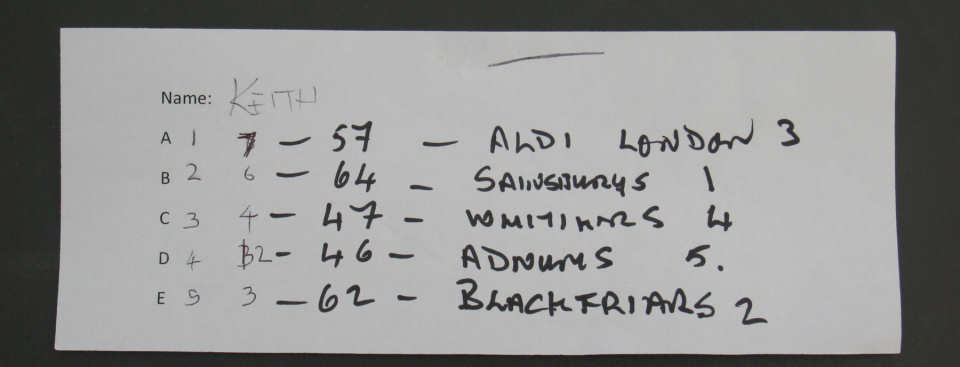 Name: KEITH
A 1 7 — 57 — ALDI LONDON 3
B 2 6 — 64 — SAINSBURYS 1
C 3 4 — 47 — WHITTAKERS 4
D 4 2 — 46 — ADNUMS 5.
E 5 3 — 62 — BLACKFRIARS 2